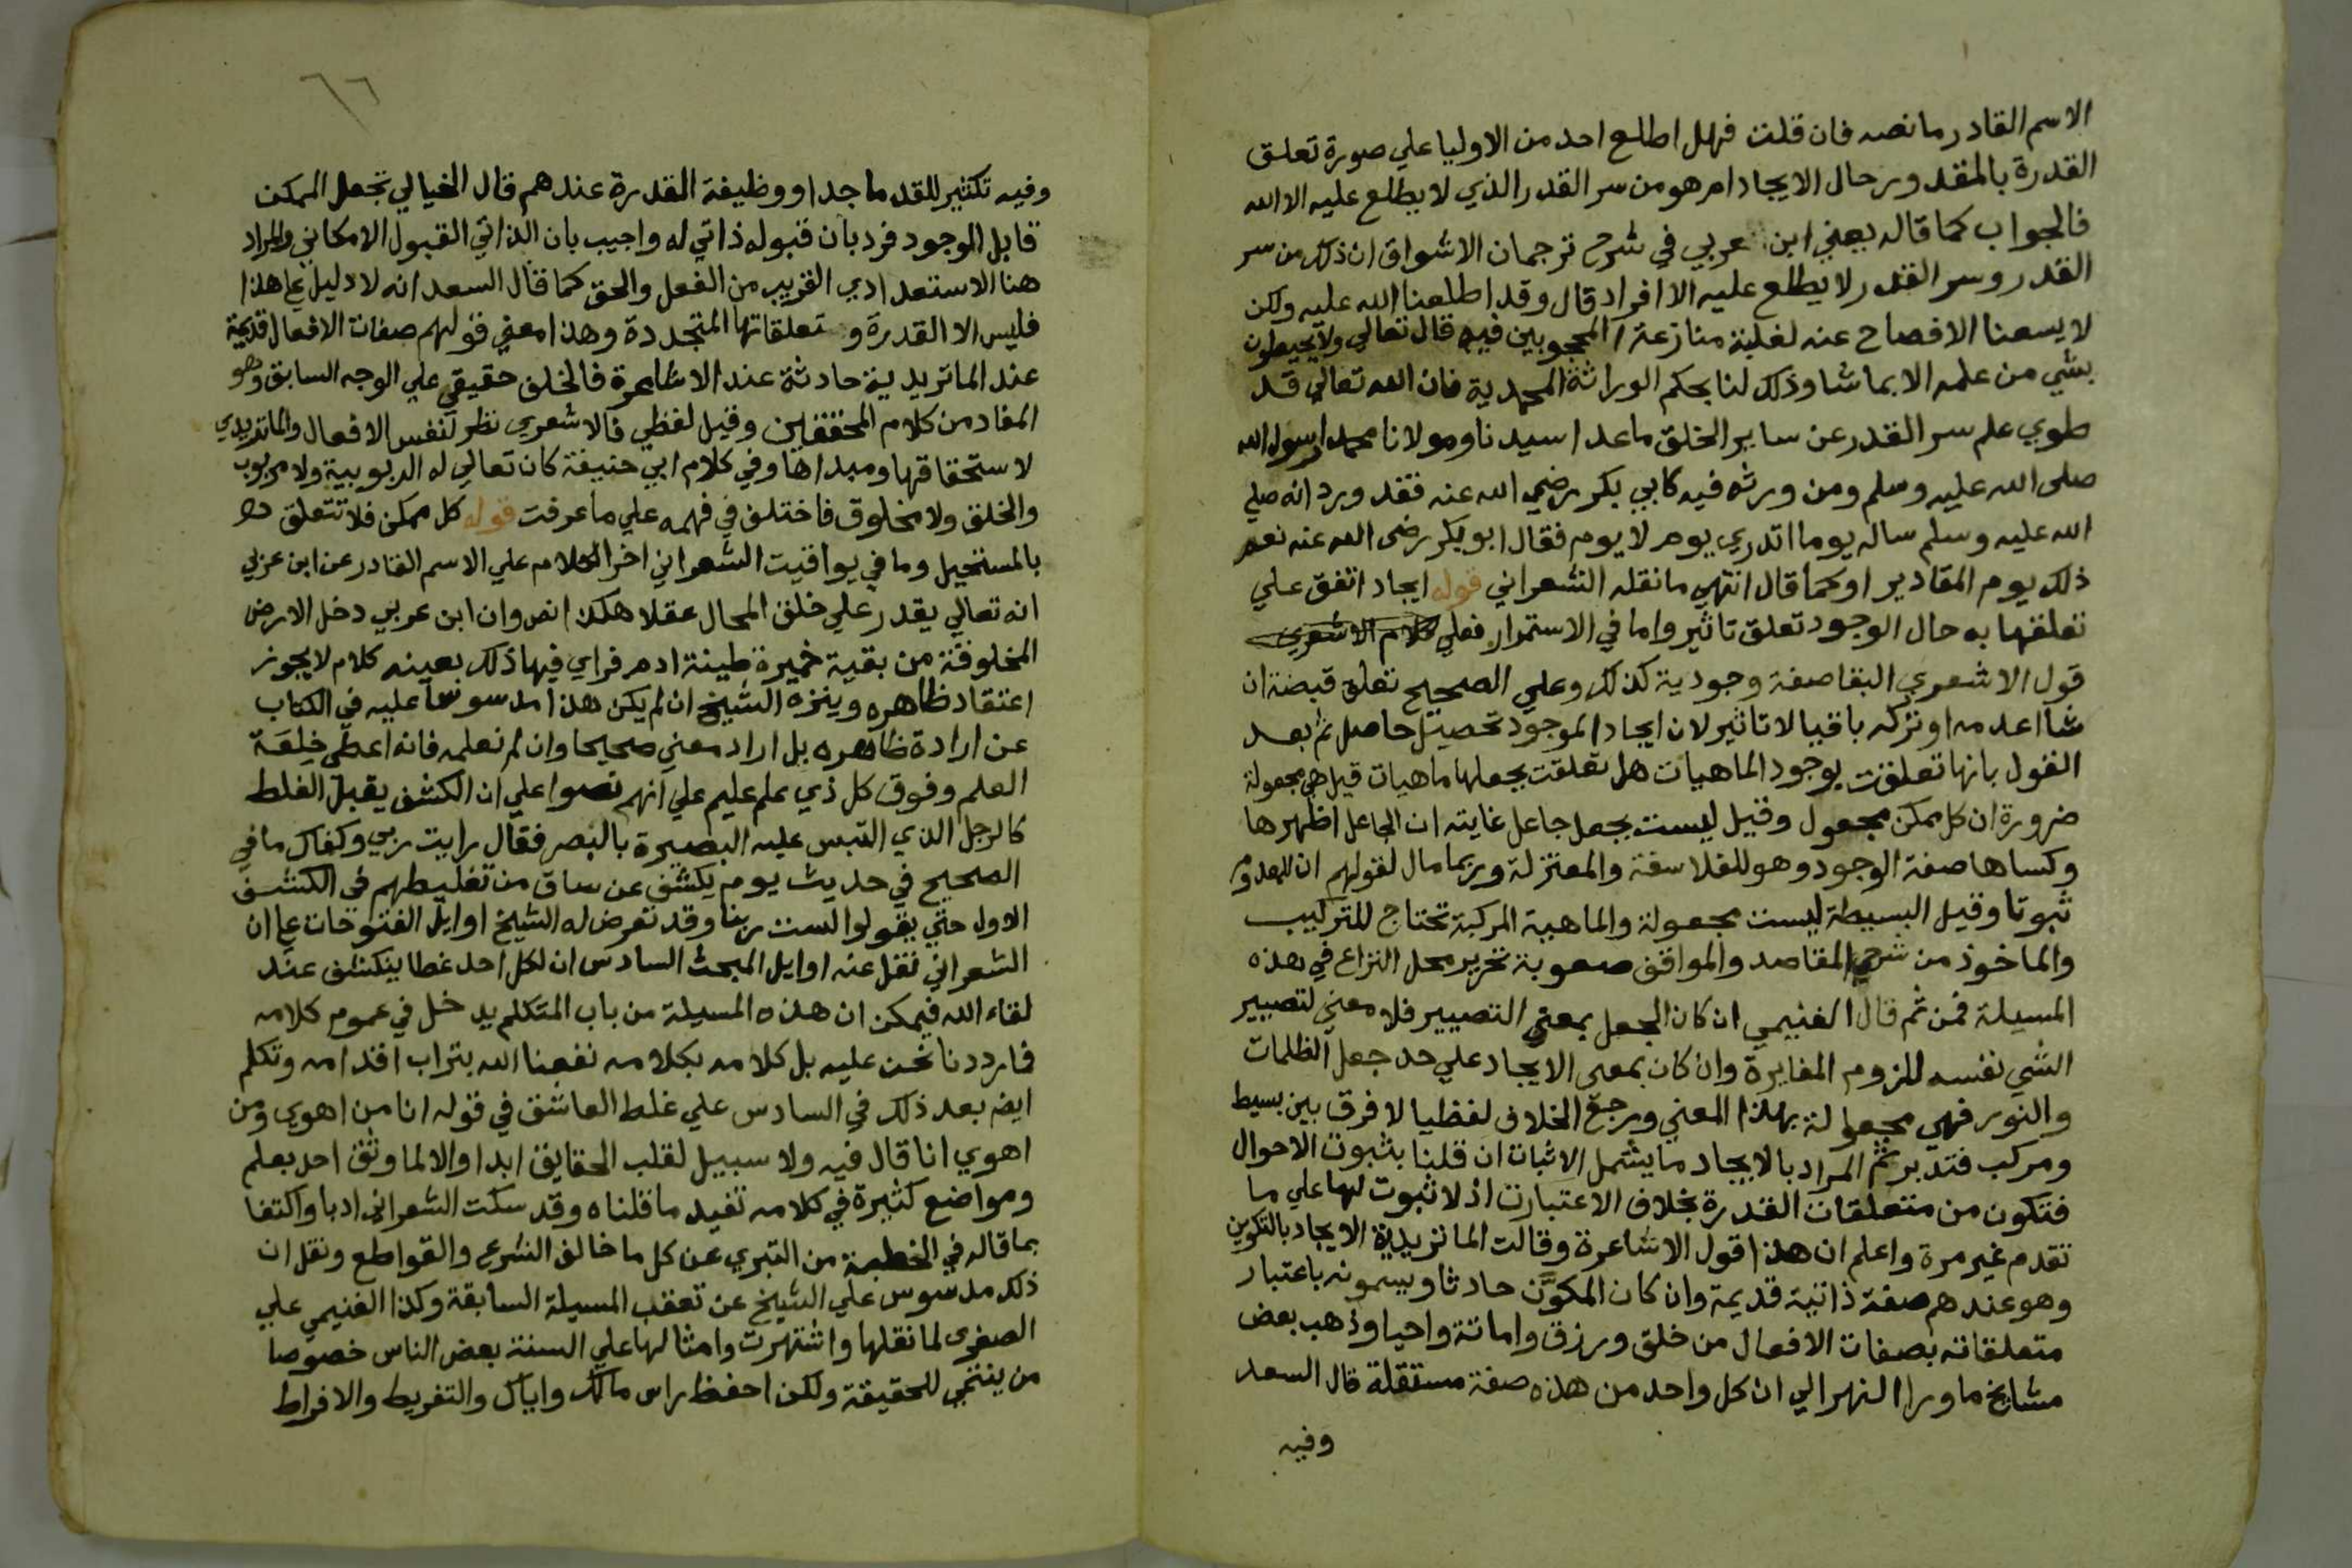 الاسم القادر ما نصه فان قلت فهل اطلع احد من الاوليا علي صورة تعلق
القدرة بالمقدور حال الايجاد ام هو من سر القدر الذي لا يطلع عليه الا الله
فالجواب كما قاله يعني ابن عربي في شرح ترجمان الاشواق ان ذلك من سر
القدر وسر القدر لا يطلع عليه الا افراد قال وقد اطلعنا الله عليه ولكن
لا يسعنا الافصاح عنه لغلبة منازعة المحجوبين فيه قال تعالي ولا يحيطون
بشي من علمه الا بما شا وذلك لنا بحكم الوراثة المحمدية فان الله تعالي قد
طوي علم سر القدر عن ساير الخلق ما عدا سيدنا ومولانا محمدا رسول الله
صلى الله عليه وسلم ومن ورثه فيه كابي بكر رضي الله عنه فقد ورد انه صلي
الله عليه وسلم ساله يوما اتدري يوم لا يوم فقال ابو بكر رضى الله عنه نعم
ذلك يوم المقادير او كما قال انتهي ما نقله الشعراني قوله ايجاد اتفق علي
تعلقها به حال الوجود تعلق تاثير واما في الاستمرار فعلي كلام الاشعري
قول الاشعري البقا صفة وجودية كذلك وعلي الصحيح تعلق قبضة ان
شا اعدمه او تركه باقيا لا تاثير لان ايجاد الموجود تحصيل حاصل ثم بعد
القول بانها تعلقت بوجود الماهيات هل تعلقت بجعلها ماهيات قيل هي مجعولة
ضرورة ان كل ممكن مجعول وقيل ليست بجعل جاعل غايته ان الجاعل اظهرها
وكساها صفة الوجود وهو للفلاسفة والمعتزلة وربما مال لقولهم ان للمعدوم
ثبوتا وقيل البسيطة ليست مجعولة والماهية المركبة تحتاج للتركيب
والماخوذ من شرحي المقاصد والمواقف صعوبة تحرير محل النزاع في هذه
المسيلة فمن ثم قال الغنيمي ان كان الجعل بمعني التصيير فلا معني لتصيير
الشي نفسه للزوم المغايرة وان كان بمعني الايجاد علي حد جعل الظلمات
والنور فهي مجعولة بهذا المعني ورجع الخلاف لفظيا لا فرق بين بسيط
ومركب فتدبر ثم المراد بالايجاد ما يشمل الاثبات ان قلنا بثبوت الاحوال
فتكون من متعلقات القدرة بخلاف الاعتبارت اذ لا ثبوت لها علي ما
تقدم غير مرة واعلم ان هذا قول الاشاعرة وقالت الماتريدية الايجاد بالتكوين
وهو عندهم صفة ذاتية قديمة وان كان المكوَّن حادثا ويسمونه باعتبار
متعلقاته بصفات الافعال من خلق ورزق واماتة واحيا وذهب بعض
مشايخ ما ورا النهر الي ان كل واحد من هذه صفة مستقلة قال السعد
وفيه
٦٦
وفيه تكثير للقدما جدا ووظيفة القدرة عندهم قال الخيالي تجعل الممكن
قابل الوجود فرد بان قبوله ذاتي له واجيب بان الذاتي القبول الامكاني والمراد
هنا الاستعدادي القريب من الفعل والحق كما قال السعد انه لا دليل علي هذا
فليس الا القدرة وتعلقاتها المتجددة وهذا معني قولهم صفات الافعال قديمة
عند الماتريدية حادثة عند الاشاعرة فالخلف حقيقي علي الوجه السابق وهو
المفاد من كلام المحققين وقيل لفظي فالاشعري نظر لنفس الافعال والماتريدي
لاستحقاقها ومبداها وفي كلام ابي حنيفة كان تعالي له الربوبية ولا مربوب
والخلق ولا مخلوق فاختلف في فهمه علي ما عرفت قوله كل ممكن فلا تتعلق
بالمستحيل وما في يواقيت الشعراني اخر الكلام علي الاسم القادر عن ابن عربي
انه تعالي يقدر علي خلق المحال عقلا هكذا نص وان ابن عربي دخل الارض
المخلوقة من بقية خميرة طينة ادم فراي فيها ذلك بعينه كلام لا يجوز
اعتقاد ظاهره وينزه الشيخ ان لم يكن هذا مدسوسا عليه في الكتاب
عن ارادة ظاهره بل اراد معني صحيحا وان لم نعلمه فانه اعطي خلعة
العلم وفوق كل ذي علم عليم علي انهم نصوا علي ان الكشف يقبل الغلط
كالرجل الذي التبس عليه البصيرة بالبصر فقال رايت ربي وكفاك ما في
الصحيح في حديث يوم يكشف عن ساق من تغليطهم في الكشف
الاول حتي يقولوا لست ربنا وقد تعرض له الشيخ اوايل الفتوحات علي ان
الشعراني نقل عنه اوايل المبحث السادس ان لكل احد غطا ينكشف عند
لقاء الله فيمكن ان هذه المسيلة من باب المتكلم يدخل في عموم كلامه
فما رددنا نحن عليه بل كلامه بكلامه نفعنا الله بتراب اقدامه وتكلم
ايضا بعد ذلك في السادس علي غلط العاشق في قوله انا من اهوي ومن
اهوي انا قال فيه ولا سبيل لقلب الحقايق ابدا والا لما وثق احد بعلم
ومواضع كثيرة في كلامه تفيد ما قلناه وقد سكت الشعراني ادبا واكتفا
بما قاله في الخطبة من التبري عن كل ما خالف الشرع والقواطع ونقل ان
ذلك مدسوس علي الشيخ عن تعقب المسيلة السابقة وكذا الغنيمي علي
الصغرى لما نقلها واشتهرت وامثالها علي السنة بعض الناس خصوصا
من ينتمي للحقيقة ولكن احفظ راس مالك واياك والتفريط والافراط